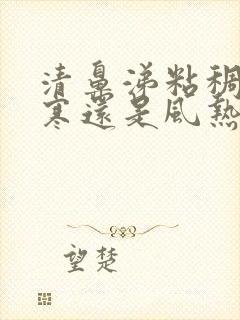 清鼻涕粘稠
寒還是風熱
望楚